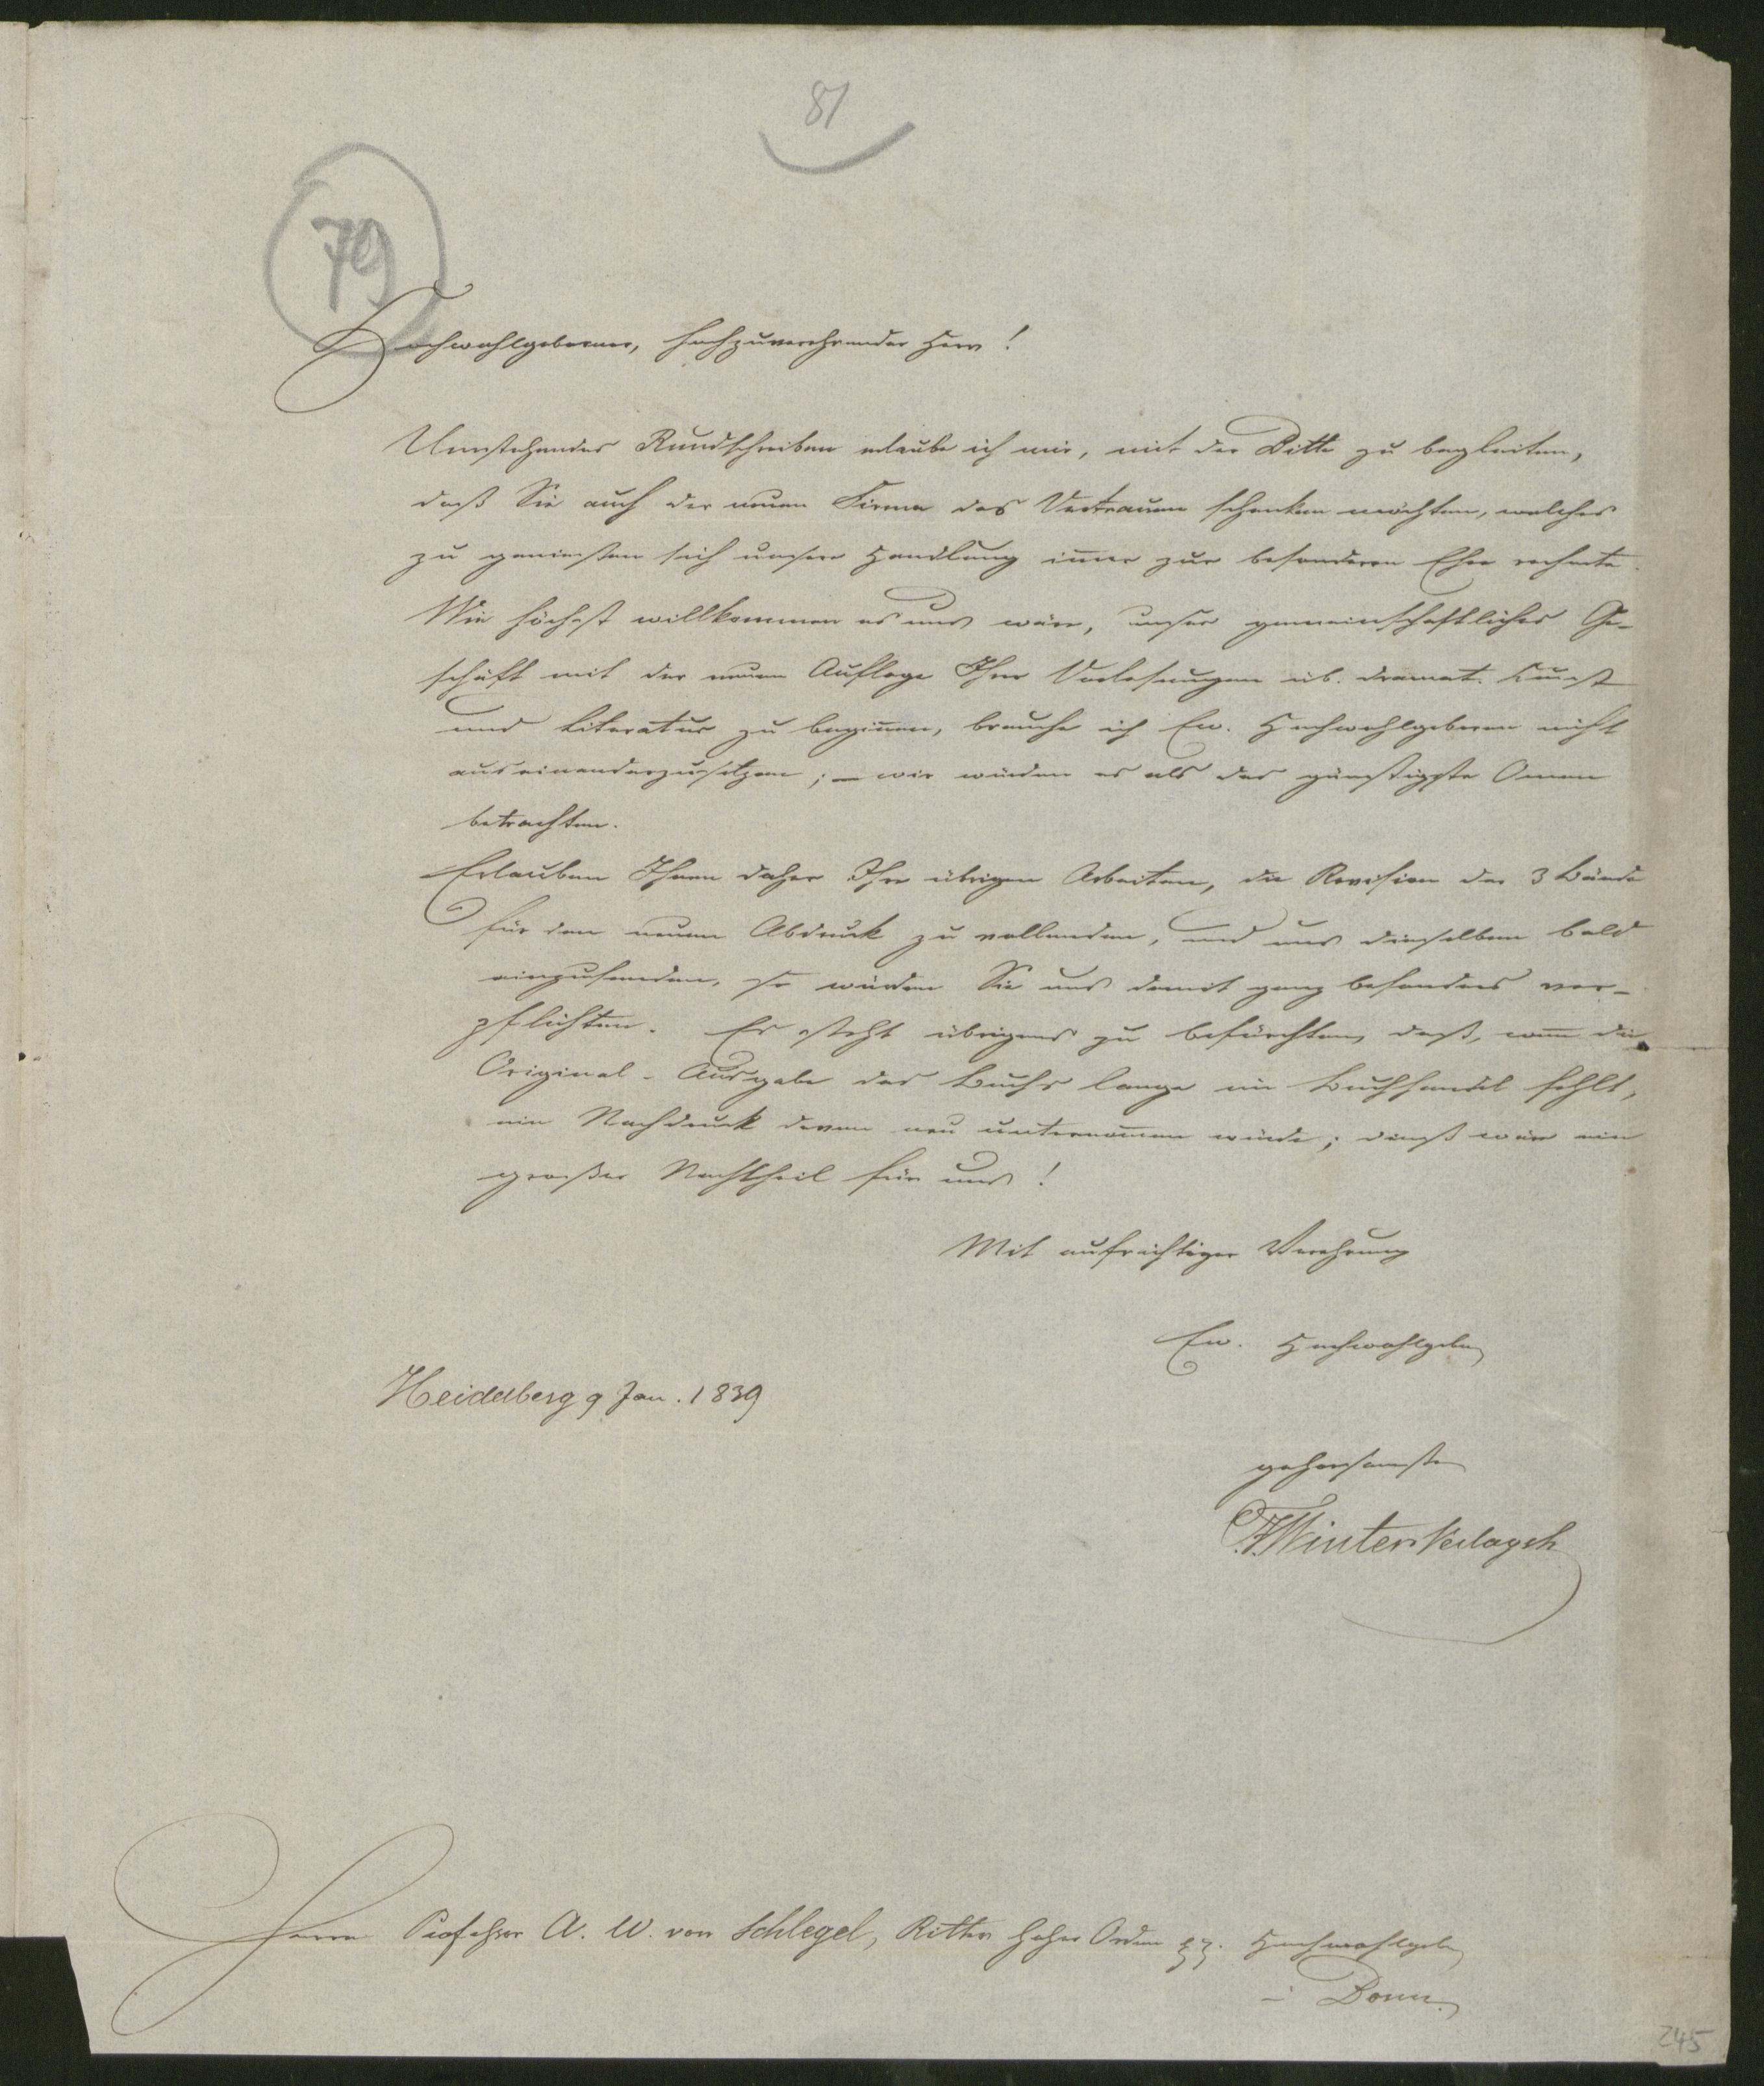 81
79
Hochwohlgeborner, hochzuverehrender Herr!
Umstehendes Rundschreiben erlaube ich mir, mit der Bitte zu begleiten,
daß Sie auch der neuen Firma das Vertrauen schenken möchten, welches
zu geniessen sich unsere Handlung im̅er zur besonderen Ehre rechnete.
Wie höchst willkommen es uns wäre, unser gemeinschaftliches Ge-
schäft mit der neuen Auflage Ihrer Vorlesungen üb. dramat. Kunst
und Literatur zu begin̅en, brauche ich Ew. Hochwohlgeboren nicht
auseinanderzusetzen; – wir würden es als das günstigste Omen
betrachten.
Erlauben Ihnen daher Ihre übrigen Arbeiten, die Revision der 3 Bände
für den neuen Abdruck zu vollenden, und uns dieselben bald
einzusenden, so würden Sie uns damit ganz besonders ver-
pflichten. Es steht übrigens zu befürchten, daß, wen̅ die
Original-Ausgabe des Buchs lange im Buchhandel fehlt,
ein Nachdruck davon neu unternom̅en würde; dieß wäre ein
großer Nachtheil für uns!
Mit aufrichtiger Verehrung
Ew. Hochwohlgeb
Heidelberg 9 Jan. 1839
gehorsamste
CFWinter Verlagsh
Herrn Professor A. W. von Schlegel, Ritter hoher Orden pp. Hochwohlgeb
in Bonn.
245